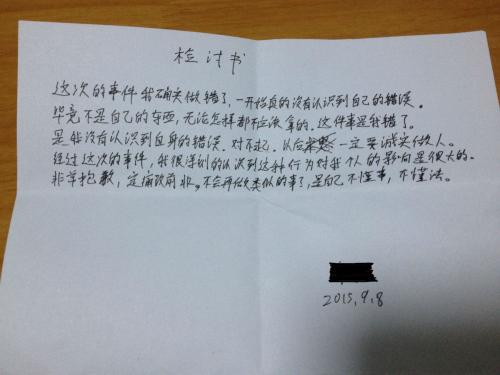 检讨书
这次的事件我确实做错了，一开始真的没有认识到自己的错误。
毕竟不是自己的东西，无论怎样都不应该拿的。这件事是我错了。
是我没有认识到自身的错误。对不起。以后一定要诚实做人。
经过这次的事件，我很深刻的认识到这种行为对我个人的影响是很大的。
非常抱歉，定痛改前非。不会再做类似的事了，是自己不懂事，不懂法。
2015.9.8